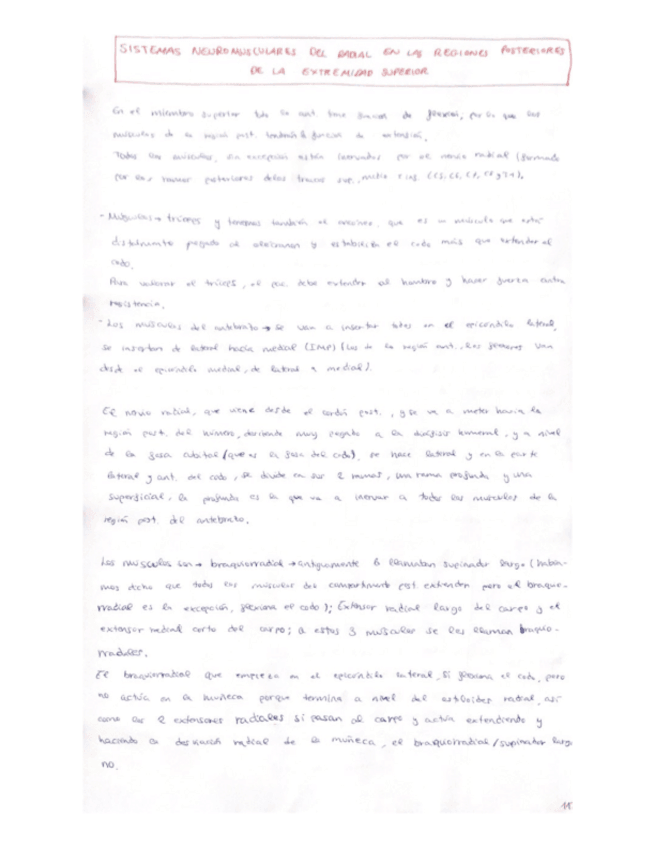 SISTEMAS NEUROMUSCULARES DEL RADIAL EN LAS REGIONES POSTERIORES
DE LA EXTREMIDAD SUPERIOR
En el miembro superior toda la ant. tiene función de flexión, por lo que los
músculos de la región post. tendrán la función de extensión.
Todos los músculos, sin excepción están inervados por el nervio radial (formado
por las ramas posteriores de los troncos sup., medio e inf. (C5, C6, C7, C8 y T1).
- Músculos → tríceps y tenemos también el ancóneo, que es un músculo que está
distalmente pegado al olécranon y estabiliza el codo más que extender el
codo.
Para valorar el tríceps, el pac. debe extender el hombro y hacer fuerza contra
resistencia.
- Los músculos del antebrazo → se van a insertar todos en el epicóndilo lateral,
se insertan de lateral hacia medial (IMP) (los de la región ant., los flexores van
desde el epicóndilo medial, de lateral a medial).
El nervio radial, que viene desde el cordón post., y se va a meter hacia la
región post. del húmero, discurriendo muy pegado a la diáfisis humeral, y a nivel
de la fosa cubital (que es la fosa del codo), se hace lateral y en la parte
lateral y ant. del codo, se divide en sus 2 ramas, una rama profunda y una
superficial, la profunda es la que va a inervar a todos los músculos de la
región post. del antebrazo.
Los músculos son → braquiorradial → antiguamente lo llamaban supinador largo (había-
mos dicho que todos los músculos del compartimento post. extienden pero el braquio-
rradial es la excepción, flexiona el codo); Extensor radial largo del carpo y el
extensor radial corto del carpo; a estos 3 músculos se les llaman braquio-
rradiales.
El braquiorradial que empieza en el epicóndilo lateral, sí flexiona el codo, pero
no actúa en la muñeca porque termina a nivel del estiloides radial, así
como los 2 extensores radiales sí pasan al carpo y actúa extendiendo y
haciendo la desviación radial de la muñeca, el braquiorradial/supinador largo
no.
11